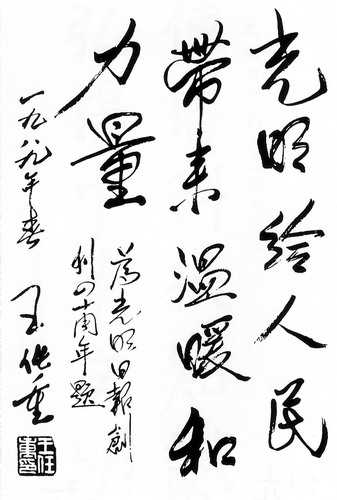 光明给人民
帶来温暖和
力量
為光明日報創
刊四十周年題
一九八九年春 王任重
王任重印